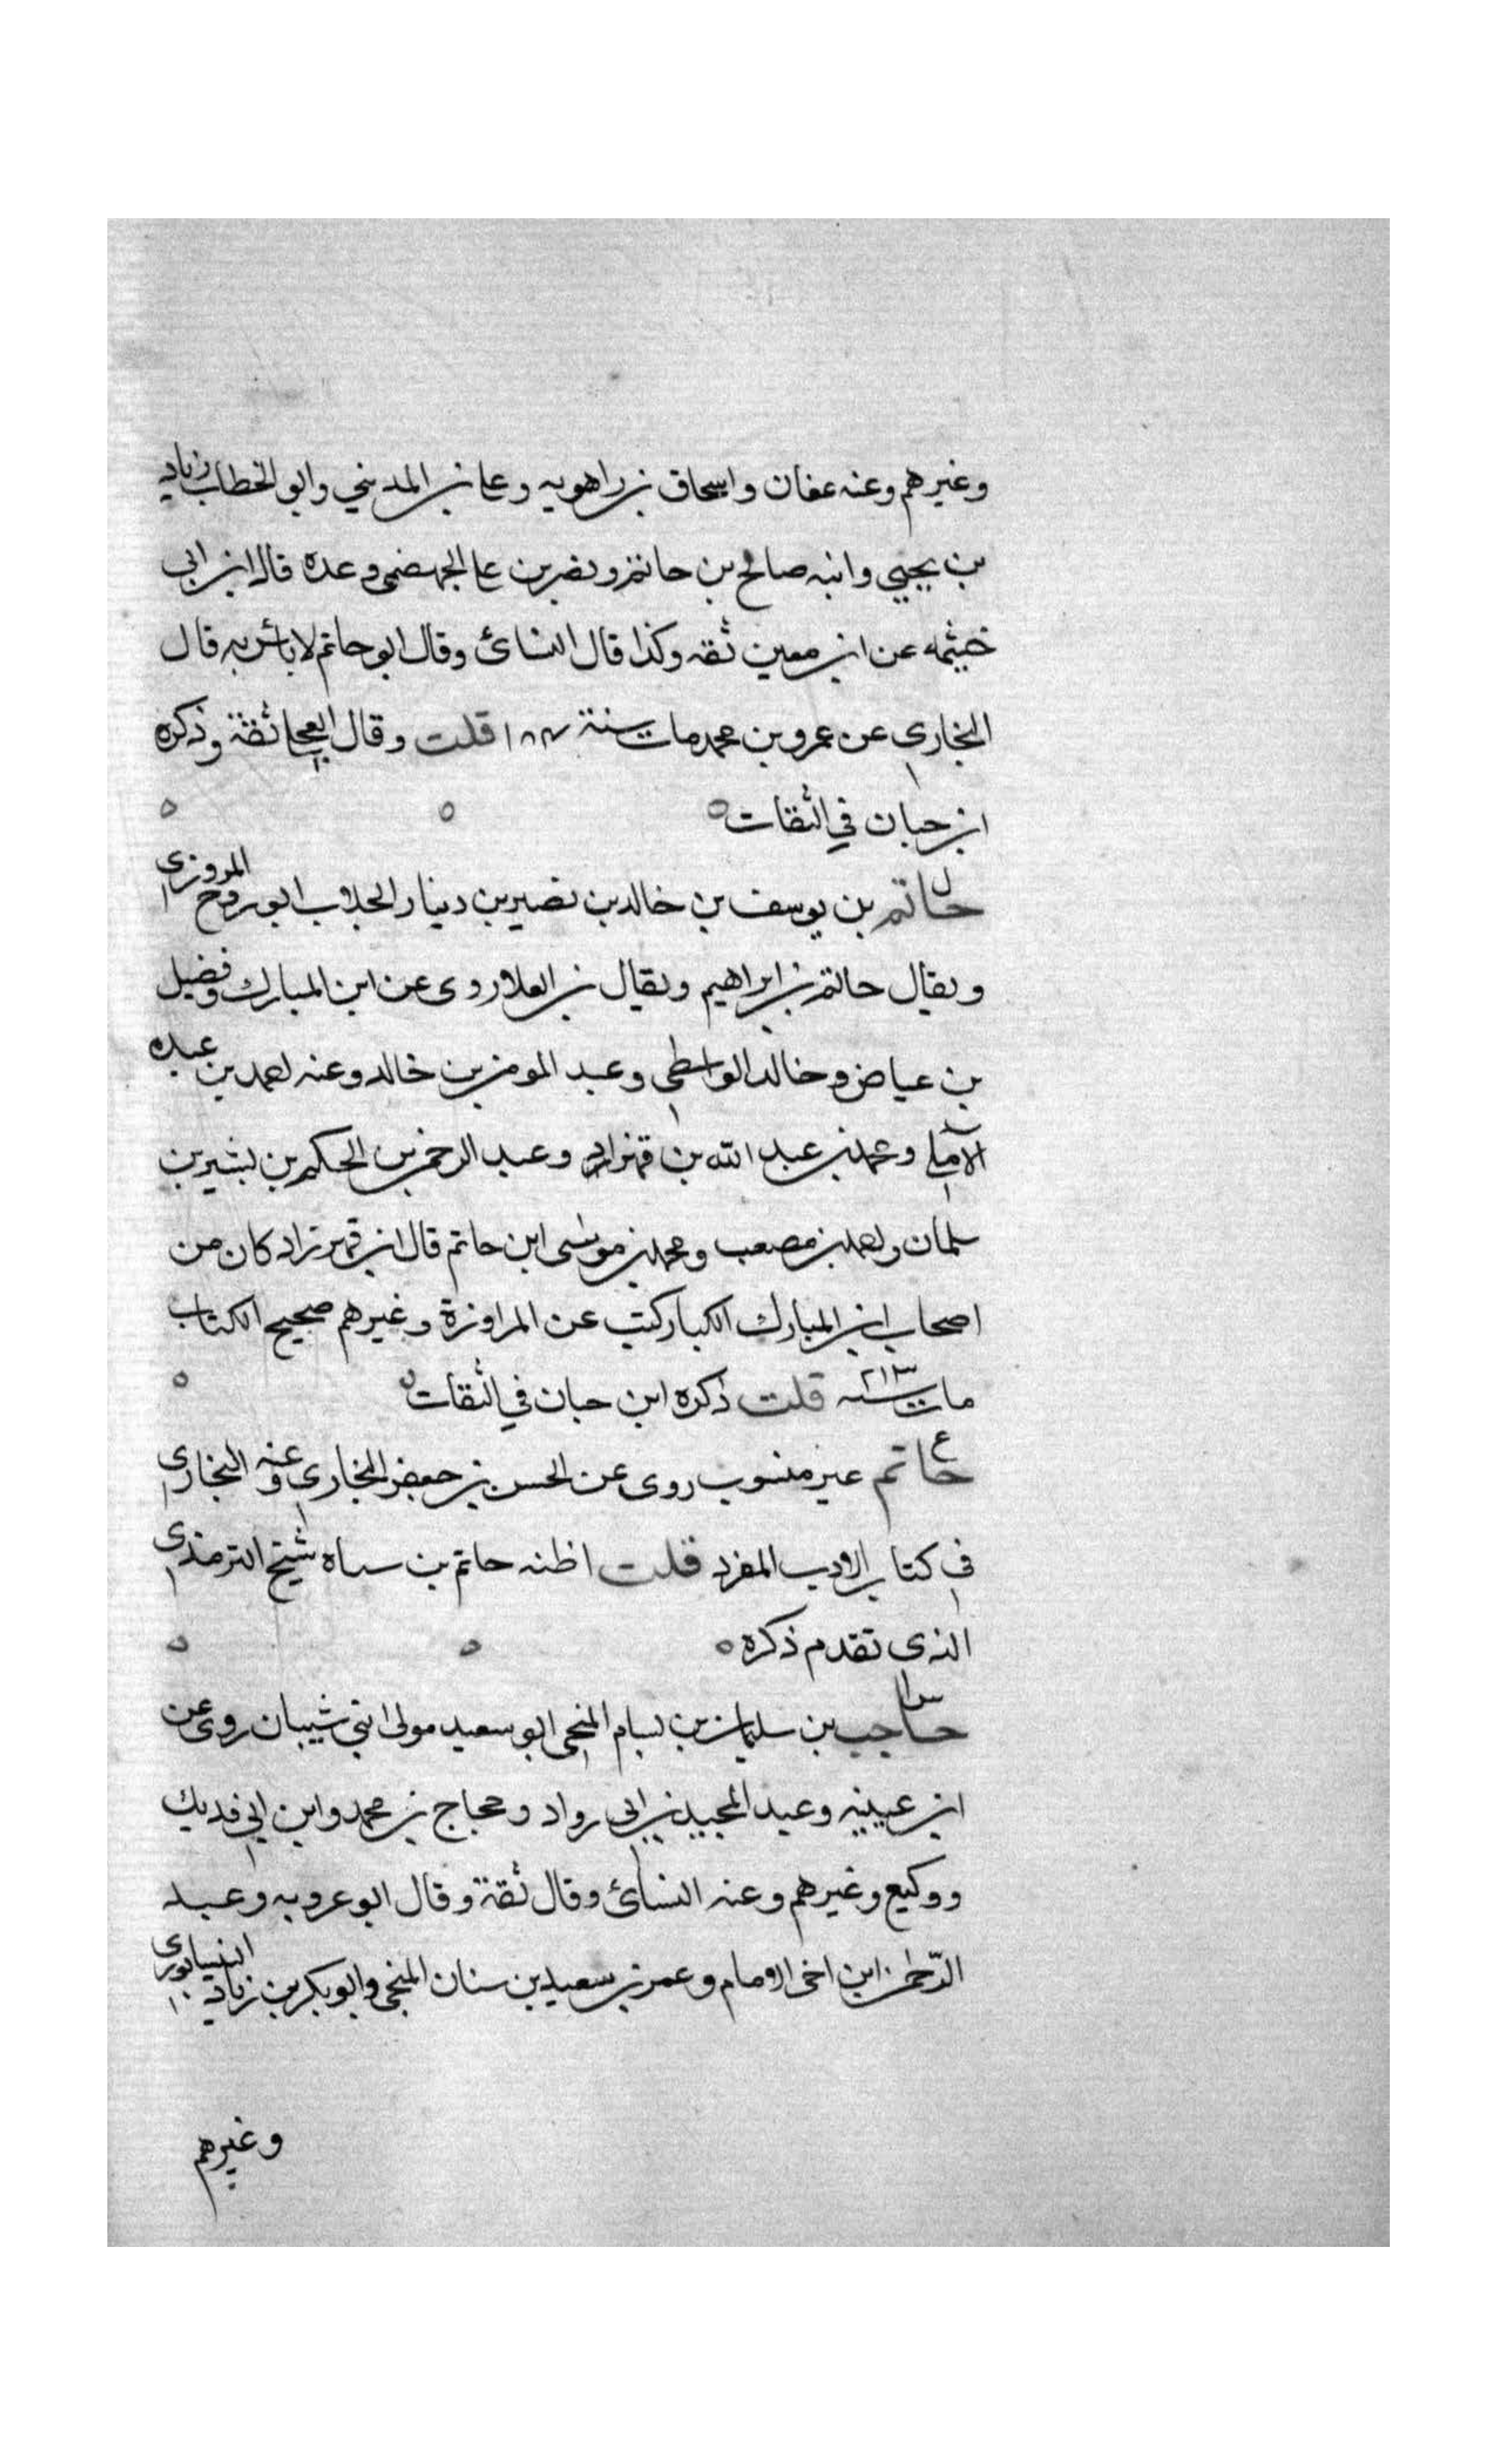 وغيرهم وعنه عفان واسحاق بن راهويه وعلي بن المديني وابو الخطاب زياد
بن يحيي وابنه صالح بن حاتم ونصر بن علي الجهضمي وعده قال ابن ابي
خيثمه عن ابن معين ثقه وكذا قال النسائ وقال ابو حاتم لا باس به قال
البخاري عن عمرو بن محمد مات سنة ١٨٤ قلت وقال العجلي ثقة وذكره
ابن حبان في الثقات
حاتم بن يوسف بن خالد بن نصير بن دينار الجلاب ابو روح المروزي
ويقال حاتم بن ابراهيم ويقال بن العلا روى عن ابن المبارك وفضيل
بن عياض وخالد الواسطي وعبد المومن بن خالد وعنه احمد بن عبده
الآملي ومحمد بن عبد الله بن قهزاد وعبد الرحمن بن الحكم بن بشير بن
سلمان واحمد بن مصعب ومحمد بن موسى ابن حاتم قال ابن قهزاد كان من
اصحاب ابن المبارك الكبار كتب عن المراوزة وغيرهم صحيح الكتاب
مات سنه ٢١٣ قلت ذكره ابن حبان في الثقات
حاتم غير منسوب روى عن الحسن بن جعفر البخاري وعنه البخاري
في كتاب الادب المفرد قلت اظنه حاتم بن سياه شيخ الترمذي
الذي تقدم ذكره
حاجب بن سليمان بن بسام المنبجي ابو سعيد مولى بني شيبان روى عن
ابن عيينه وعبد المجيد بن ابي رواد وحجاج بن محمد وابن ابي فديك
ووكيع وغيرهم وعنه النسائ وقال ثقة وقال ابو عروبه وعبد
الرحمن ابن اخي الامام وعمر بن سعيد بن سنان المنبجي وابو بكر بن زياد النيسابوري
وغيرهم